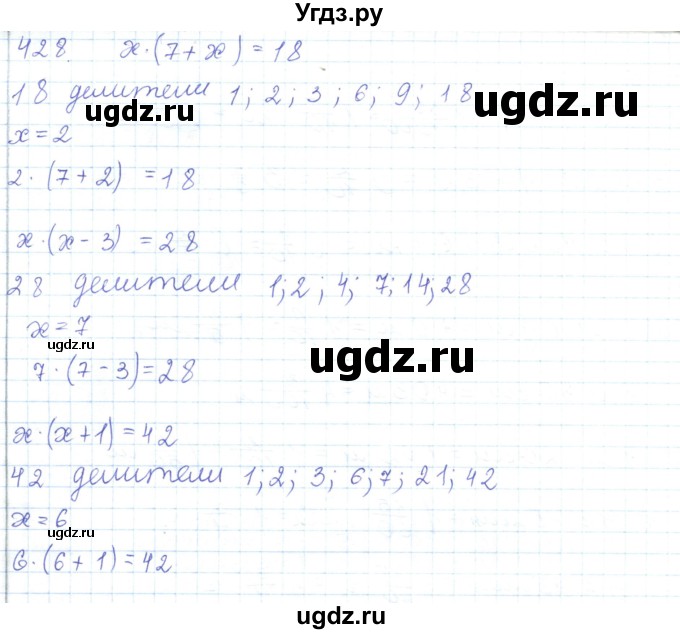 Угдз.ру
428. x·(7+x)=18
18 делители 1; 2; 3; 6; 9; 18
ugdz.ru
ugdz.ru
x=2
2·(7+2) =18
x·(x-3) =28
28 делители 1;2;4;7;14;28
x=7
ugdz.ru
ugdz.ru
7·(7-3)=28
x·(x+1)=42
42 делители 1;2;3;6;7;21;42
x=6
ugdz.ru
6·(6+1)=42
ugdz.ru